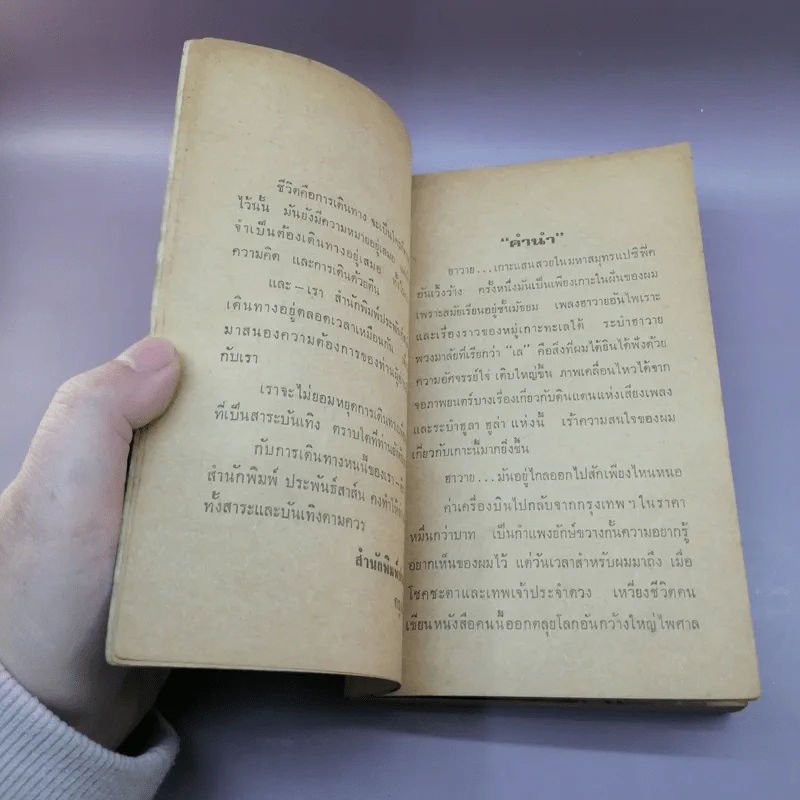 ชีวิตคือการเดินทาง จะเป็นไป
ไว้นั้น มันยังมีความหมายอยู่เสมอ
จำเป็นต้องเดินทางอยู่เสมอ
ความคิด และการเดินด้วยตีน
และ—เรา สำนักพิมพ์ประพันธ์
เดินทางอยู่ตลอดเวลาเหมือนกัน
มาสนองความต้องการของท่านผู้
กับเรา
เราจะไม่ยอมหยุดการเดินทาง
ที่เป็นสาระบันเทิง ตราบใดที่ท่าน
กับการเดินทางหนนี้ของเรา
สำนักพิมพ์ ประพันธ์สาส์น คงทำให้
ทั้งสาระและบันเทิงตามควร
สำนักพิมพ์
“คำนำ”
ฮาวาย...เกาะแสนสวยในมหาสมุทรแปซิฟิค
อันเวิ้งว้าง ครั้งหนึ่งมันเป็นเพียงเกาะในฝันของผม
เพราะสมัยเรียนอยู่ชั้นมัธยม เพลงฮาวายอันไพเราะ
และเรื่องราวของหมู่เกาะทะเลใต้ ระบำฮาวาย
พวงมาลัยที่เรียกว่า “เล” คือสิ่งที่ผมได้ยินได้ฟังด้วย
ความอัศจรรย์ใจ เติบใหญ่ขึ้น ภาพเคลื่อนไหวได้จาก
จอภาพยนตร์บางเรื่องเกี่ยวกับดินแดนแห่งเสียงเพลง
และระบำฮูลา ฮูล่า แห่งนี้ เร้าความสนใจของผม
เกี่ยวกับเกาะนี้มากยิ่งขึ้น
ฮาวาย...มันอยู่ไกลออกไปสักเพียงไหนหนอ
ค่าเครื่องบินไปกลับจากกรุงเทพฯในราคา
หมื่นกว่าบาท เป็นกำแพงยักษ์ขวางกั้นความอยากรู้
อยากเห็นของผมไว้ แต่วันเวลาสำหรับผมมาถึง เมื่อ
โชคชะตาและเทพเจ้าประจำดวง เหวี่ยงชีวิตคน
เขียนหนังสือคนนี้ออกตลุยโลกอันกว้างใหญ่ไพศาล